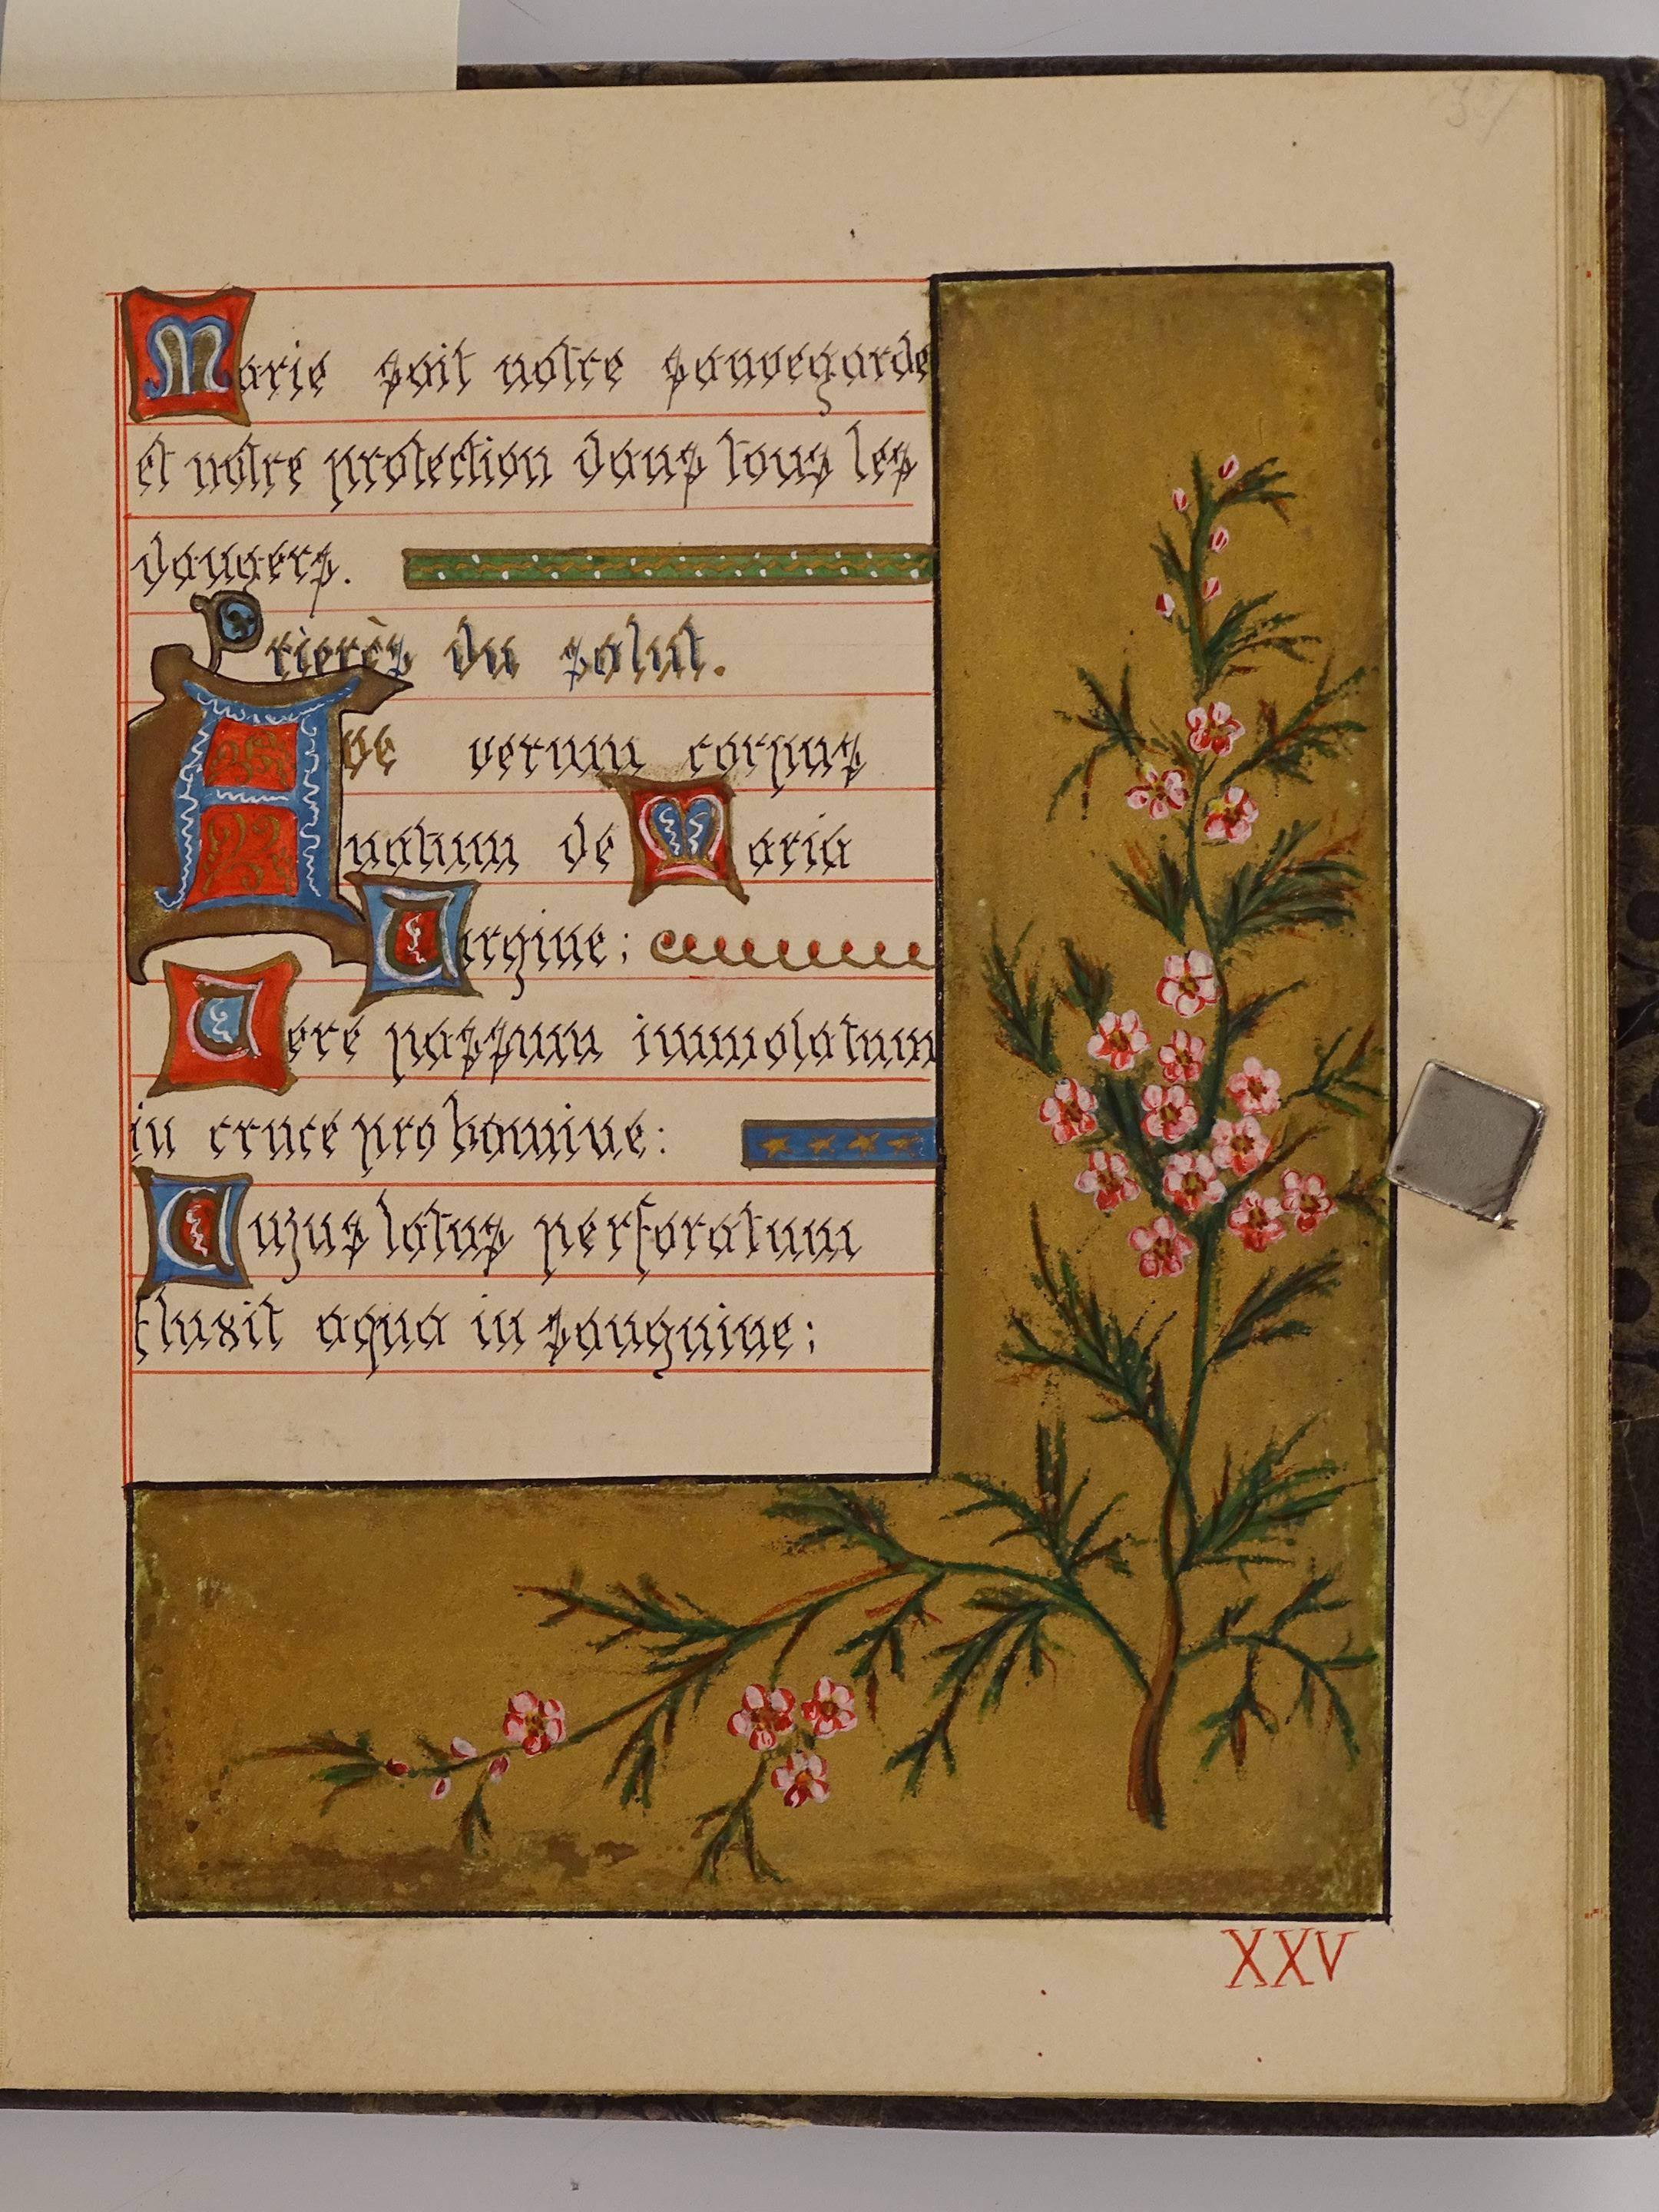 37
Marie soit notre sauvegarde
et notre protection dans tous les
dangers.
Prières du salut.
Ave verum corpus
natum de Maria
Virgine:
Vere passum immolatum
in cruce pro homine:
Cujus latus perforatum
fluxit aqua in sanguine:
XXV